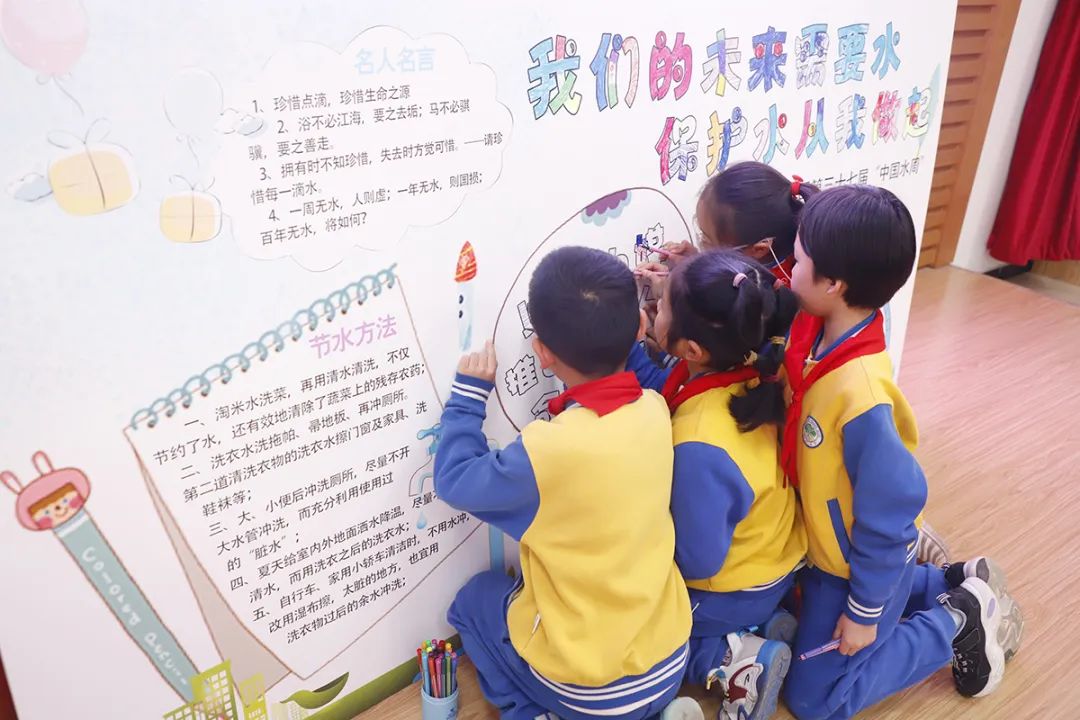 名人名言
1、珍惜点滴，珍惜生命之源
2、浴不必江海，要之去垢；马不必骐
骥，要之善走。
3、拥有时不知珍惜，失去时方觉可惜。——请珍
惜每一滴水。
4、一周无水，人则虚；一年无水，则国损；
百年无水，将如何？
我们的未来需要水
保护水从我做起
第三十七届“中国水周”
推
节水方法
一、淘米水洗菜，再用清水清洗，不仅
节约了水，还有效地清除了蔬菜上的残存农药；
二、洗衣水洗拖帕、帚地板、再冲厕所。
第二道清洗衣物的洗衣水擦门窗及家具、洗
鞋袜等；
三、大、小便后冲洗厕所，尽量不开
大水管冲洗，而充分利用使用过
的“脏水”；
四、夏天给室内外地面洒水降温，尽量
清水，而用洗衣之后的洗衣水；
五、自行车、家用小轿车清洁时，不用水冲，
改用湿布擦，太脏的地方，也宜用
洗衣物过后的余水冲洗；